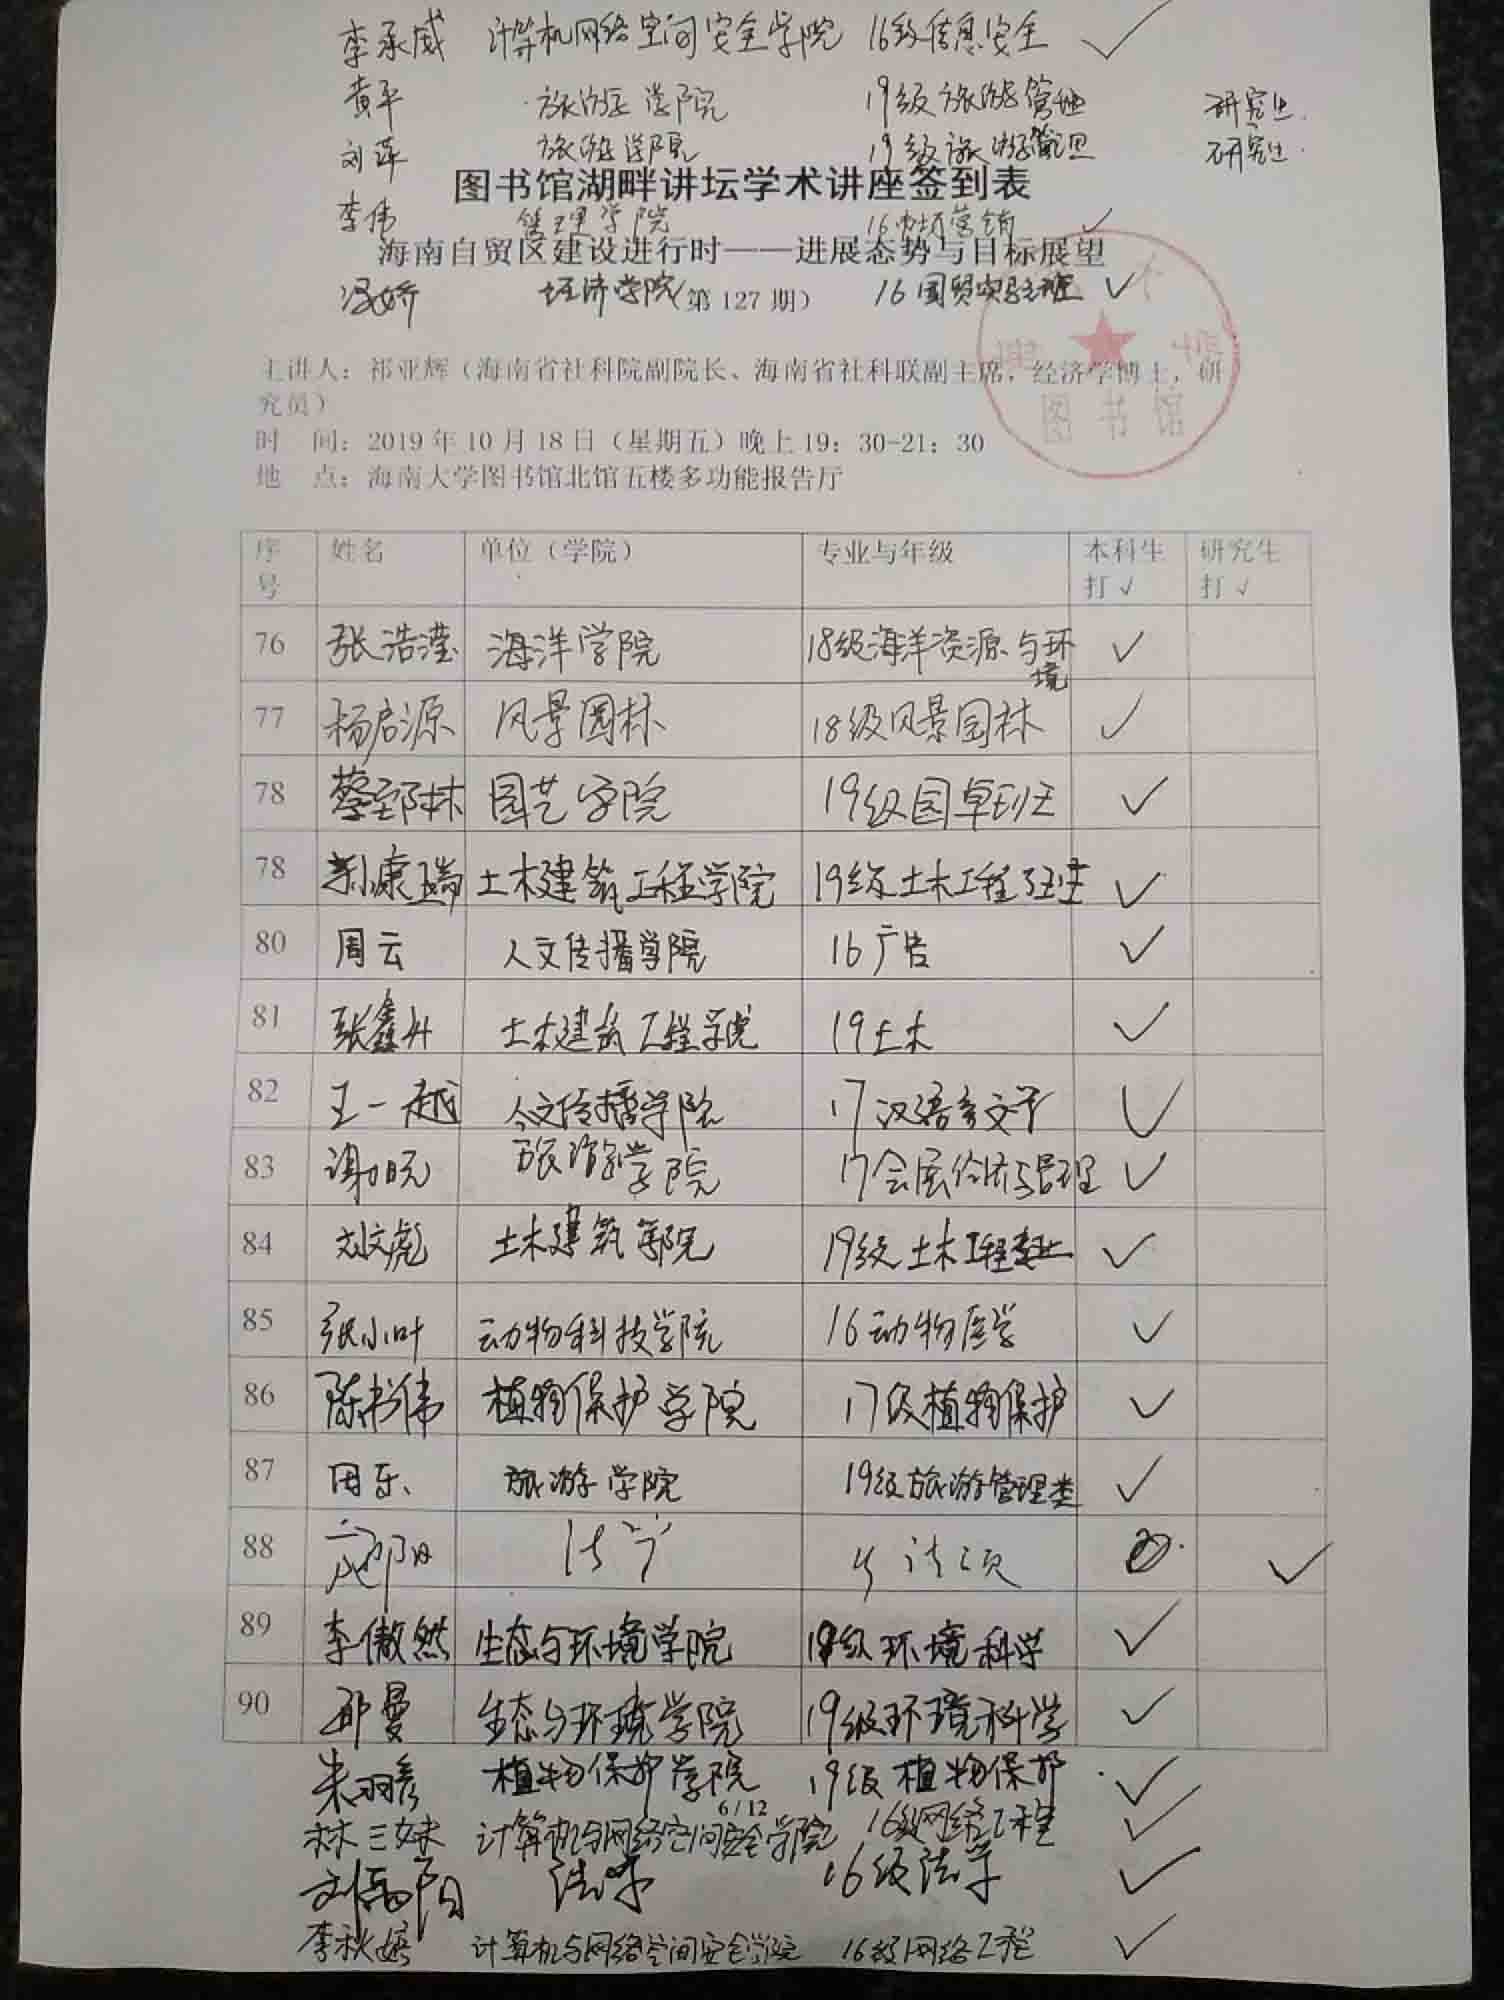 李承威 计算机网络空间安全学院 16级信息安全 ✓
黄平 旅游学院 19级旅游管理 研究生
刘萍 旅游学院 19级旅游管理 研究生
图书馆湖畔讲坛学术讲座签到表
李伟 管理学院 16市场营销 ✓
海南自贸区建设进行时——进展态势与目标展望
冯娇 经济学院 16国贸实验班 ✓
(第 127 期)
主讲人：祁亚辉（海南省社科院副院长、海南省社科联副主席，经济学博士，研
究员）
图书馆
时 间：2019 年 10 月 18 日（星期五）晚上 19：30-21：30
地 点：海南大学图书馆北馆五楼多功能报告厅
序号 姓名 单位（学院） 专业与年级 本科生打√ 研究生打√
76 张浩滢 海洋学院 18级海洋资源与环境 ✓
77 杨启源 风景园林 18级风景园林 ✓
78 园艺学院 19级园卓班 ✓
78 康瑞 土木建筑工程学院 19级土木工程班 ✓
80 周云 人文传播学院 16广告 ✓
81 张鑫 土木建筑工程学院 19土木 ✓
82 王一越 人文传播学院 17汉语言文学 ✓
83 谢晓 旅游学院 17会展经济与管理 ✓
84 刘文彪 土木建筑学院 19级土木工程专业 ✓
85 张小叶 动物科技学院 16动物医学 ✓
86 陈书伟 植物保护学院 17级植物保护 ✓
87 田乐 旅游学院 19级旅游管理类 ✓
88 法学 ✓
89 李傲然 生态与环境学院 19级环境科学 ✓
90 邵曼 生态与环境学院 19级环境科学 ✓
朱羽彦 植物保护学院 19级植物保护 ✓
6 / 12
林三妹 计算机与网络空间安全学院 16级网络工程 ✓
刘阳 法学 16级法学 ✓
李秋婷 计算机与网络空间安全学院 16级网络工程 ✓